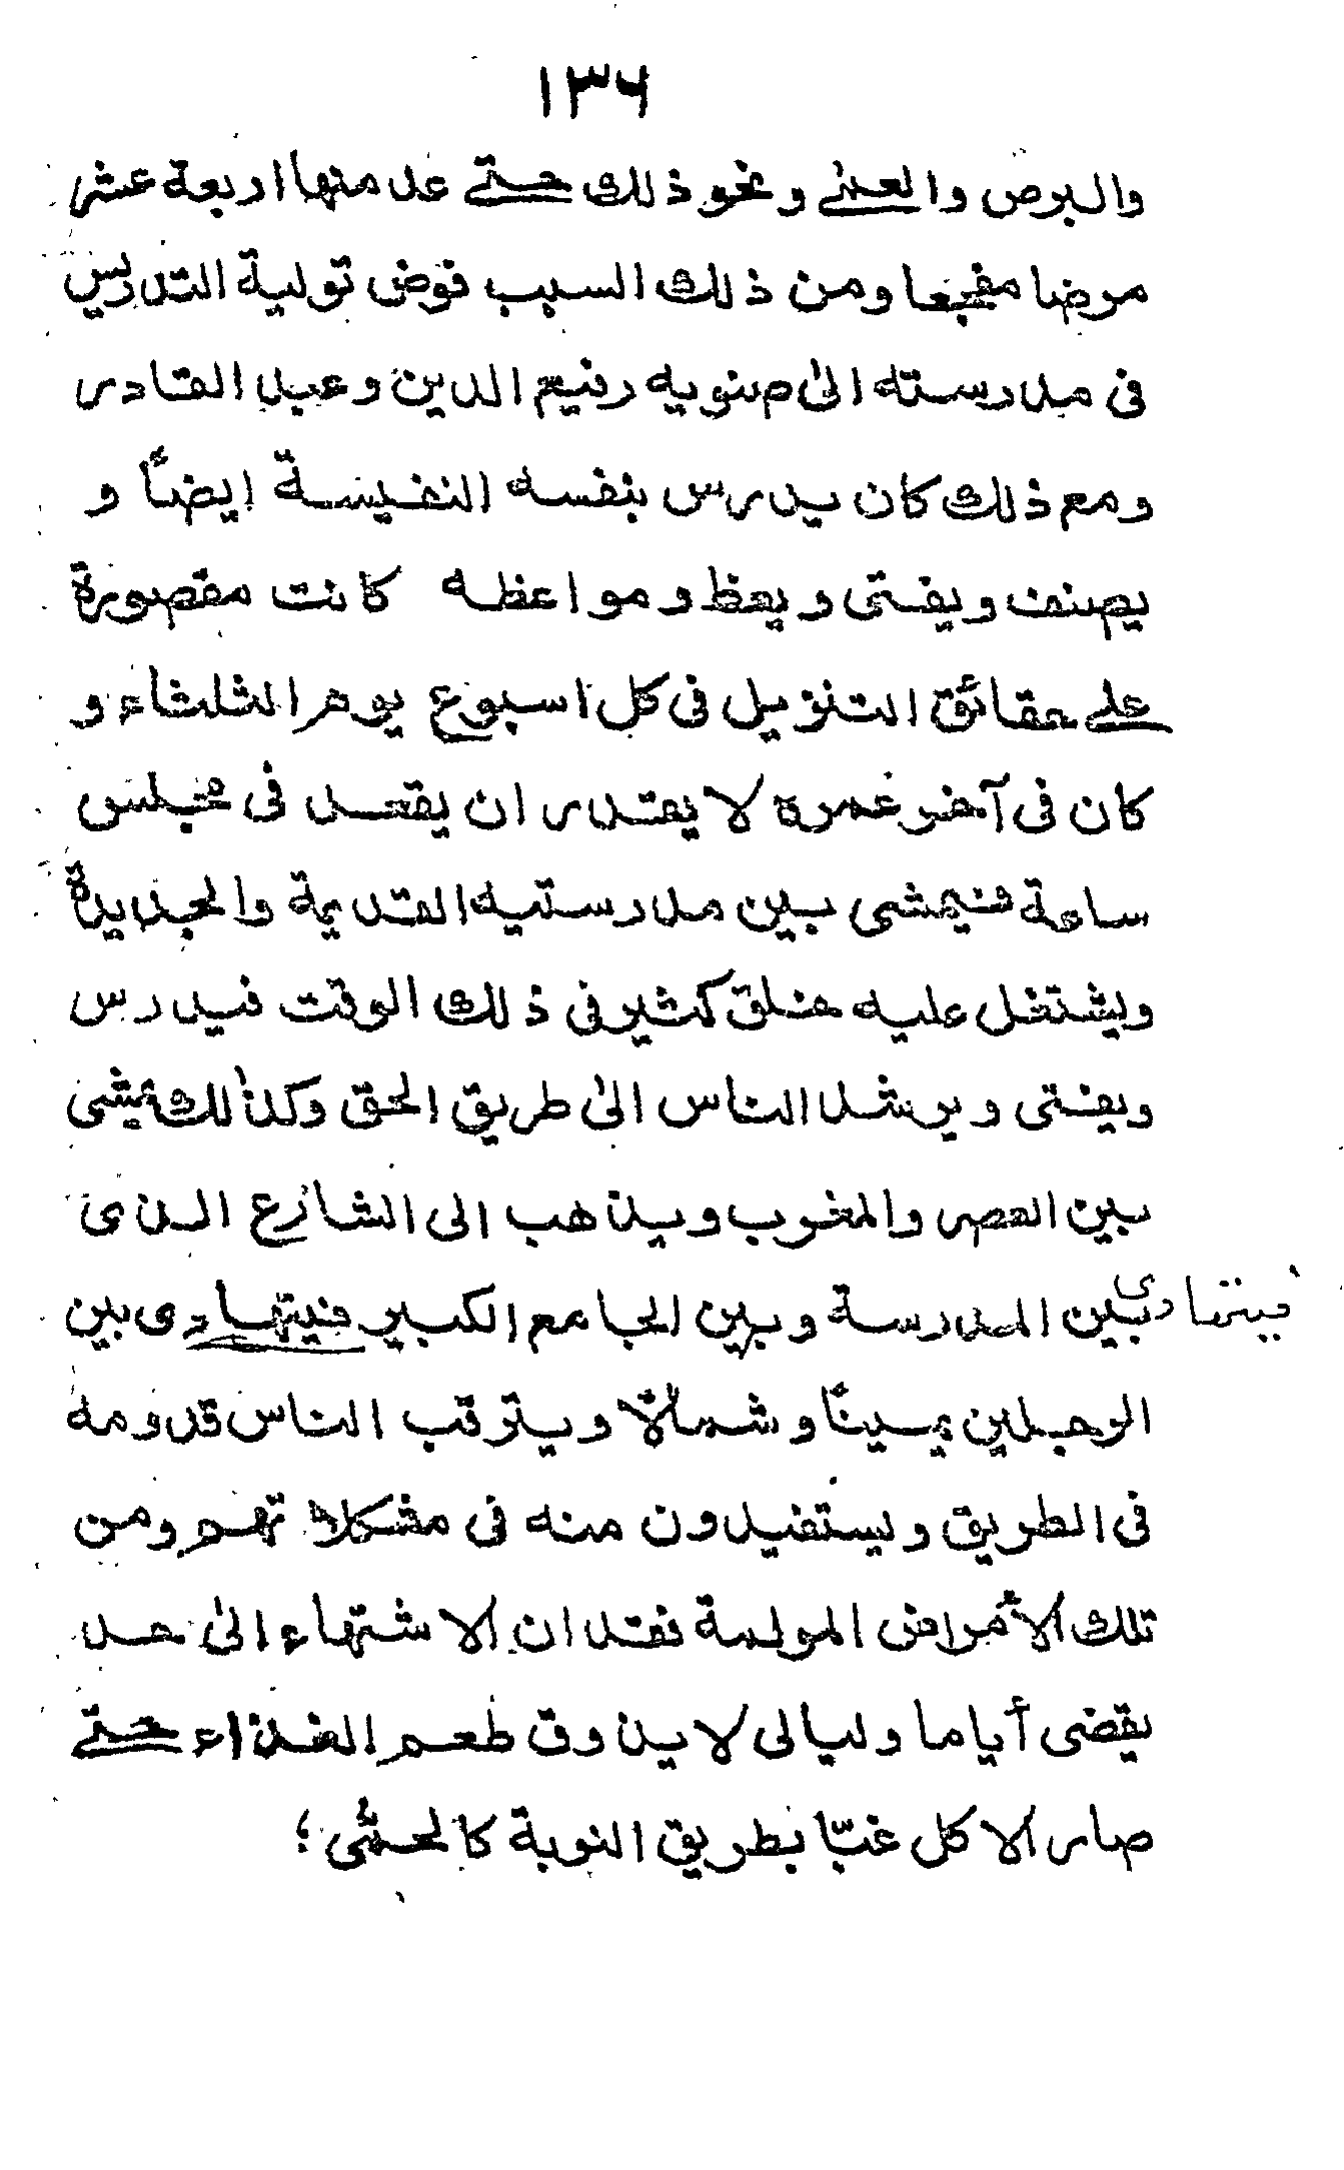 ١٣٦
والبرص والعمى ونحو ذلك حتى عد منها اربعة عشر
مرضا مفجعا ومن ذلك السبب فوض تولية التدريس
فى مدرسته الى صنويه رفيع الدين وعبد القادر
ومع ذلك كان يدرس بنفسه النفيسة ايضاً و
يصنف ويفتى ويعظ ومواعظه كانت مقصورة
على حقائق التنزيل فى كل اسبوع يوم الثلثاء و
كان فى آخر عمره لا يقدر ان يقعد فى مجلس
ساعة فيمشى بين مدرستيه القديمة والجديدة
ويشتغل عليه خلق كثير فى ذلك الوقت فيدرس
ويفتى ويرشد الناس الى طريق الحق وكذلك يمشى
بين العصر والمغرب ويذهب الى الشارع الذى
فيتهادى بين المدرسة وبين الجامع الكبير فيتهادى بين
الرجلين يميناً وشمالاً ويترقب الناس قدومه
فى الطريق ويستفيدون منه فى مشكلاتهم ومن
تلك الأمراض المولمة فقدان الاشتهاء الى حد
يقضى أياما وليالى لا يذوق طعم الغذاء حتى
صار الاكل غبّا بطريق النوبة كالحمّى ؛